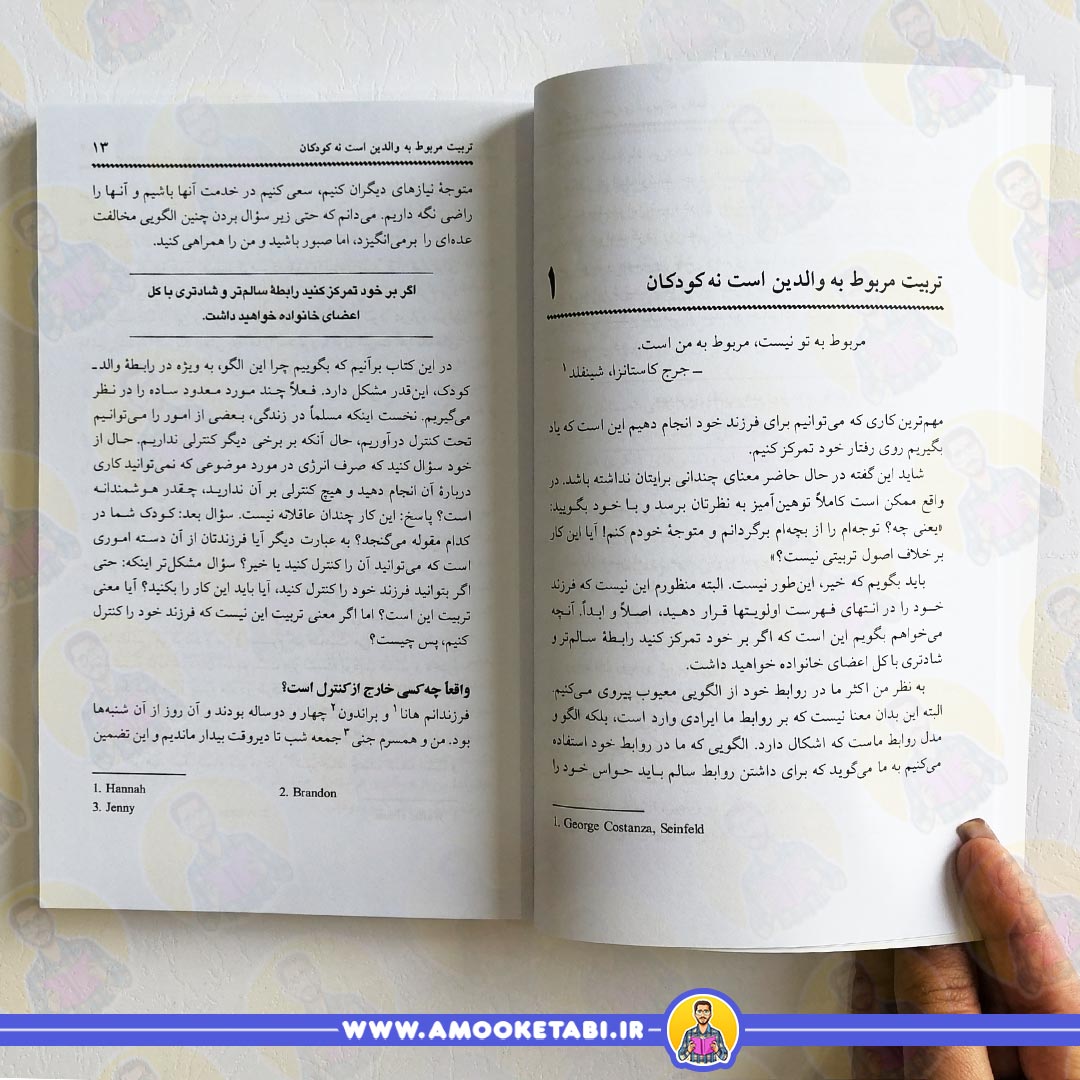 ۱
تربیت مربوط به والدین است نه کودکان
مربوط به تو نیست، مربوط به من است.
ــ جرج کاستانزا، شینفلد۱
مهم‌ترین کاری که می‌توانیم برای فرزند خود انجام دهیم این است که یاد
بگیریم روی رفتار خود تمرکز کنیم.
شاید این گفته در حال حاضر معنای چندانی برایتان نداشته باشد. در
واقع ممکن است کاملاً توهین‌آمیز به نظرتان برسد و با خود بگویید:
«یعنی چه؟ توجه‌ام را از بچه‌ام برگردانم و متوجهٔ خودم کنم! آیا این کار
برخلاف اصول تربیتی نیست؟»
باید بگویم که خیر، این‌طور نیست. البته منظورم این نیست که فرزند
خود را در انتهای فهرست اولویتها قرار دهید، اصلاً و ابداً. آنچه
می‌خواهم بگویم این است که اگر بر خود تمرکز کنید رابطهٔ سالم‌تر و
شادتری با کل اعضای خانواده خواهید داشت.
به نظر من اکثر ما در روابط خود از الگویی معیوب پیروی می‌کنیم.
البته این بدان معنا نیست که بر روابط ما ایرادی وارد است، بلکه الگو و
مدل روابط ماست که اشکال دارد. الگویی که ما در روابط خود استفاده
می‌کنیم به ما می‌گوید که برای داشتن روابط سالم باید حواس خود را
1. George Costanza, Seinfeld
تربیت مربوط به والدین است نه کودکان ۱۳
متوجهٔ نیازهای دیگران کنیم، سعی کنیم در خدمت آنها باشیم و آنها را
راضی نگه داریم. می‌دانم که حتی زیر سؤال بردن چنین الگویی مخالفت
عده‌ای را برمی‌انگیزد، اما صبور باشید و من را همراهی کنید.
اگر بر خود تمرکز کنید رابطهٔ سالم‌تر و شادتری با کل
اعضای خانواده خواهید داشت.
در این کتاب برآنیم که بگوییم چرا این الگو، به ویژه در رابطهٔ والد ـ
کودک، این‌قدر مشکل دارد. فعلاً چند مورد معدود ساده را در نظر
می‌گیریم. نخست اینکه مسلماً در زندگی، بعضی از امور را می‌توانیم
تحت کنترل درآوریم، حال آنکه بر برخی دیگر کنترلی نداریم. حال از
خود سؤال کنید که صرف انرژی در مورد موضوعی که نمی‌توانید کاری
دربارهٔ آن انجام دهید و هیچ کنترلی بر آن ندارید، چقدر هوشمندانه
است؟ پاسخ: این کار چندان عاقلانه نیست. سؤال بعد: کودک شما در
کدام مقوله می‌گنجد؟ به عبارت دیگر آیا فرزندتان از آن دسته اموری
است که می‌توانید آن را کنترل کنید یا خیر؟ سؤال مشکل‌تر اینکه: حتی
اگر بتوانید فرزند خود را کنترل کنید، آیا باید این کار را بکنید؟ آیا معنی
تربیت این است؟ اما اگر معنی تربیت این نیست که فرزند خود را کنترل
کنیم، پس چیست؟
واقعاً چه کسی خارج از کنترل است؟
فرزندانم هانا۱ و براندون۲ چهار و دوساله بودند و آن روز از آن شنبه‌ها
بود. من و همسرم جنی۳ جمعه شب تا دیروقت بیدار ماندیم و این تضمین
1. Hannah 2. Brandon
3. Jenny
WWW.AMOOKETABI.IR